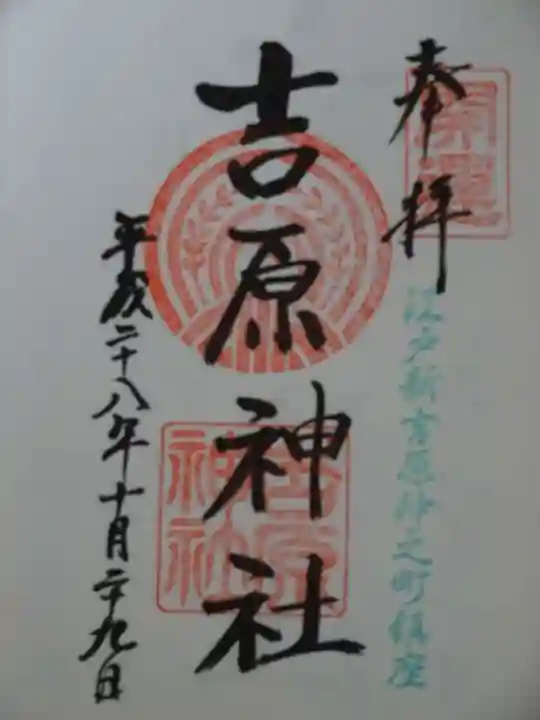 奉拝
開運
江戸新吉原仲之町鎮座
吉原神社
吉原神社
平成二十八年十月二十九日